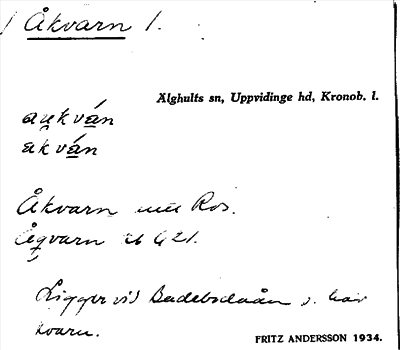 Åkvarn 1.
Älghults sn, Uppvidinge hd, Kronob. l.
aukván
akván
Åkvarn Ros.
Åqvarn 421.
Ligger vid s. här
kvarn.
FRITZ ANDERSSON 1934.